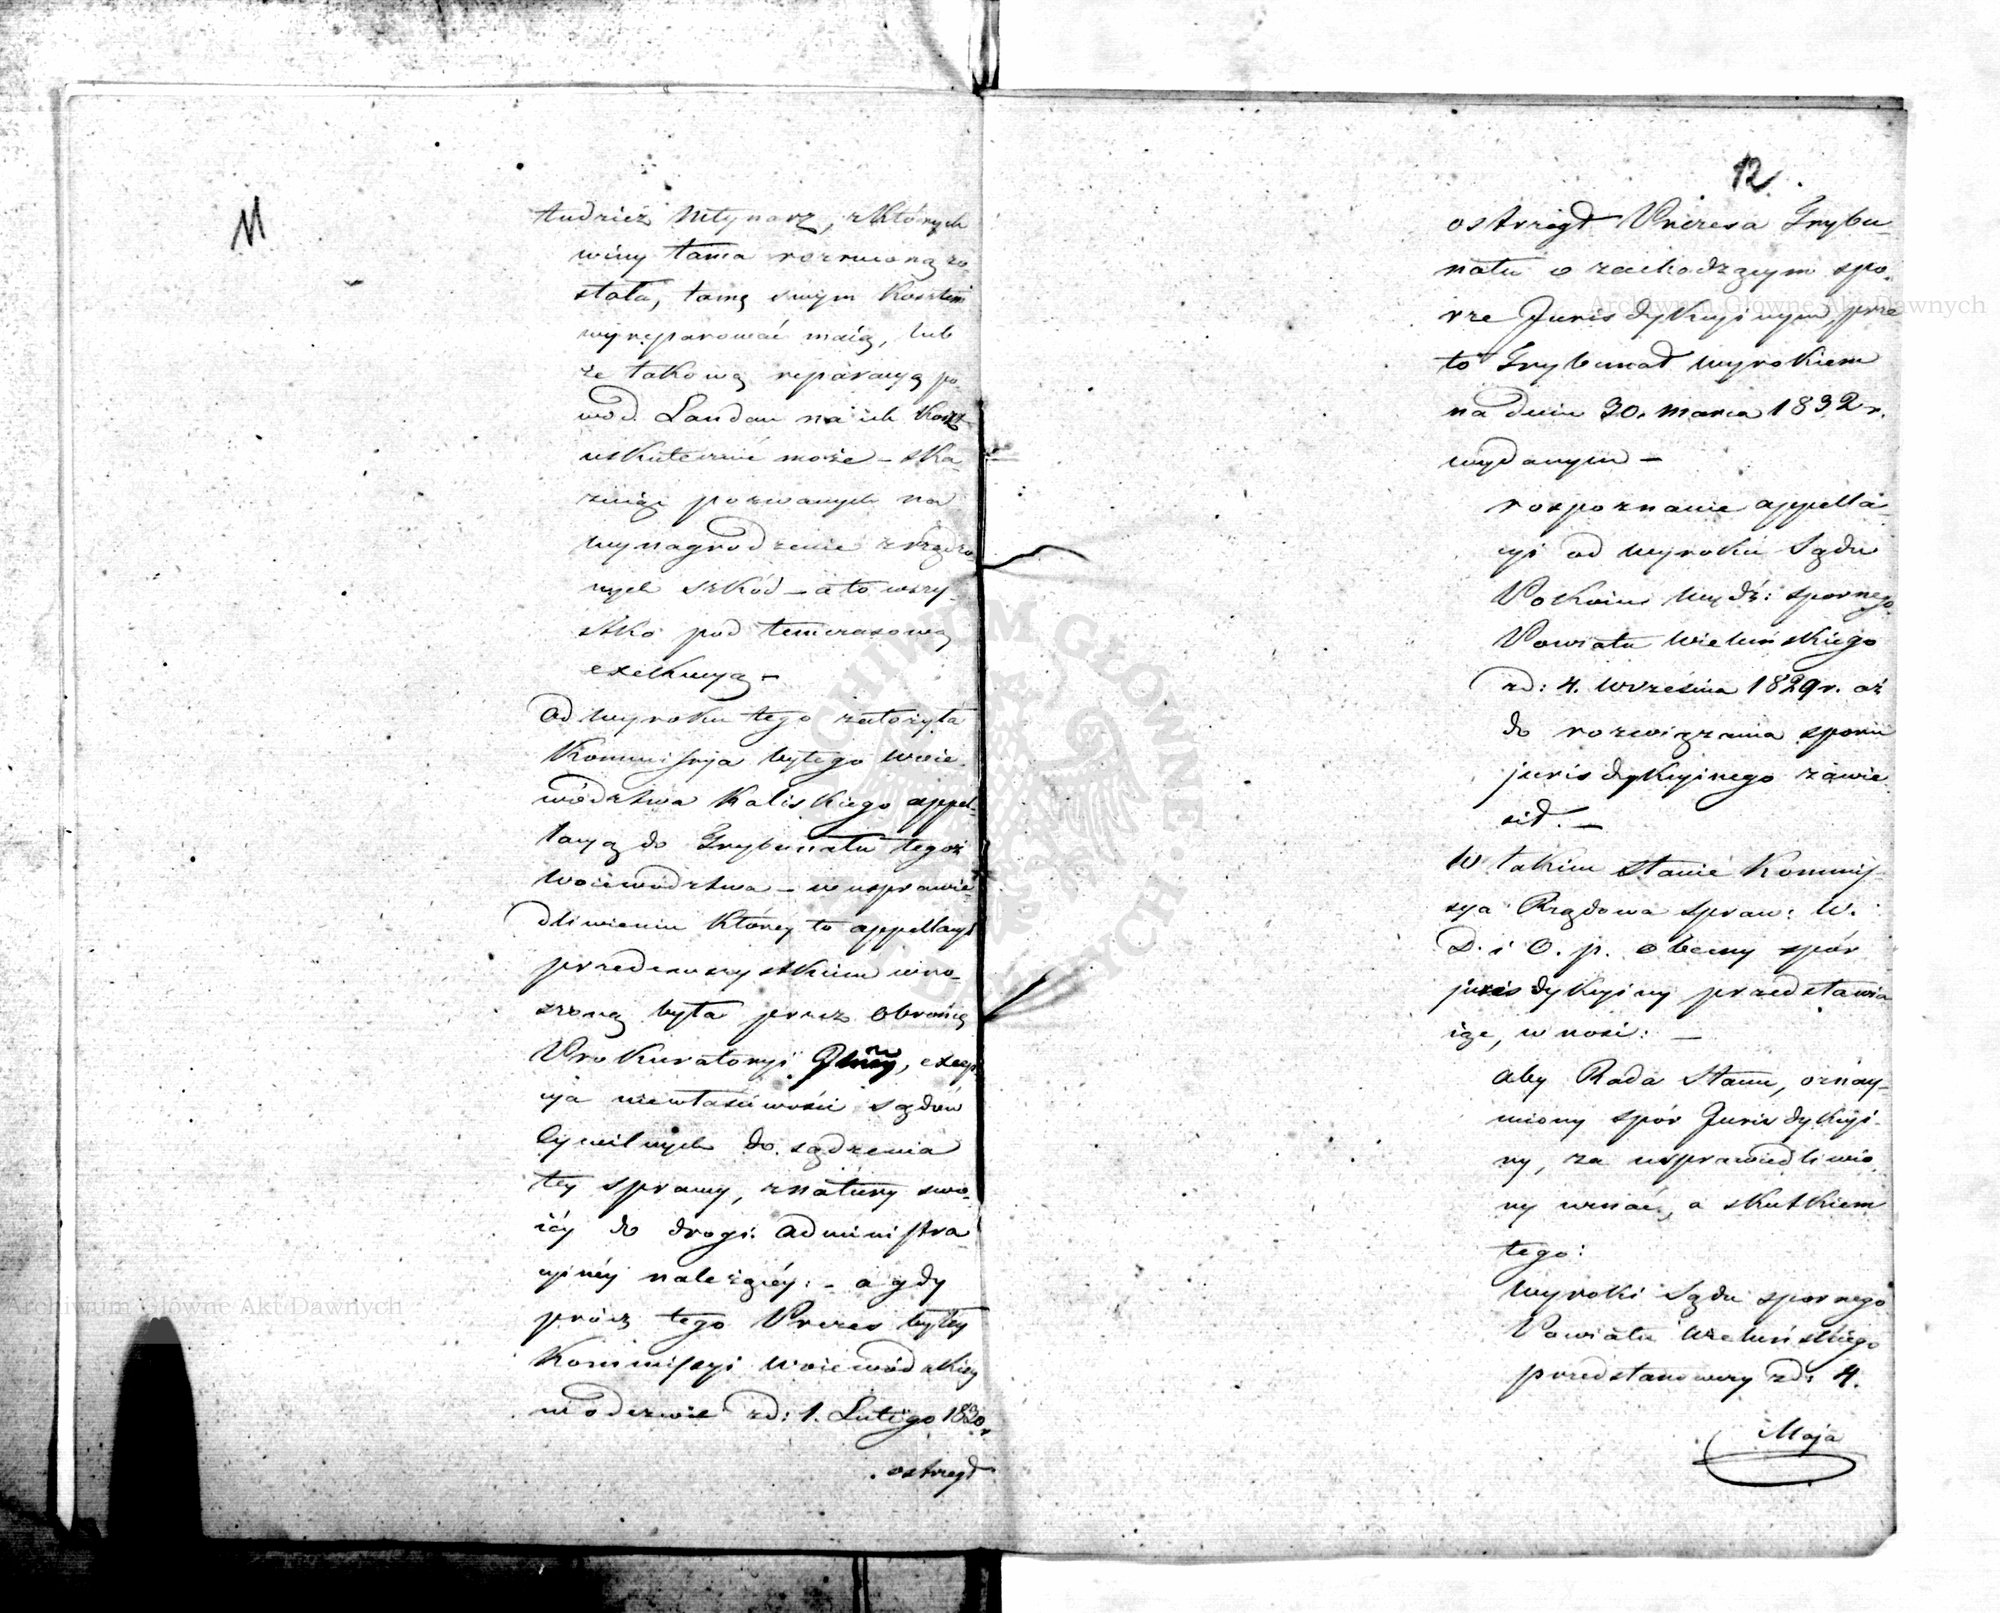 11
tudzież Młynarz, z których
winy tama rozrwioną zo-
stała, tamę swym kosztem
wyreparować maią, lub
że takową reparacyą po-
wód Landau na ich koszt
uskutecznić może – ska-
zuiąc pozwanych na
wynagrodzenie zrządzo-
nych szkód – a to wszy-
stko pod temczasową
exekucyą –
Od wyroku tego założyła
Kommissyja byłego Woie-
wództwa Kaliskiego appel-
lacyą do Trybunału tegoż
Woiewództwa – w usprawie-
dliwieniu którey to appellacyi
przedewszystkiem wno-
szoną była przez Obrońcę
Prokuratoryi, excep-
cya niewłaściwości sądów
Cywilnych do sądzenia
tey sprawy, z natury swo-
iéy do drogi administra-
cyinéy należącéy: – a gdy
prócz tego Prezes byłey
Kommissyi Woiewódzkiey
w odezwie zd: 1. Lutego 1830 r
ostrzegł
12
ostrzegł Prezesa Trybu-
nału o zachodzącym spo-
rze Jurisdykcyinym, prze-
to Trybunał wyrokiem
na dniu 30. Marca 1832 r.
wydanym –
rozpoznanie appella-
cyi od wyroku Sądu
Pokoiu Wydź: spornego
Powiatu Wieluńskiego
zd: 4. Września 1829 r. aż
do rozwiązania sporu
jurisdykcyinego zawie-
sił. –
W takim stanie Kommis-
sya Rządowa spraw: W.
D. i O. p. obecny spór
jurisdykcyiny przedstawia-
iąc, wnosi: –
aby Rada Stanu, oznay-
miony spór Jurisdykcyi-
ny, za usprawiedliwio-
ny uznać, a skutkiem
tego:
Wyroki Sądu spornego
Powiatu Wieluńskiego
przedstanowczy zd: 4.
Maja
Archiwum Główne Akt Dawnych
Archiwum Główne Akt Dawnych
ARCHIWUM GŁÓWNE AKT DAWNYCH